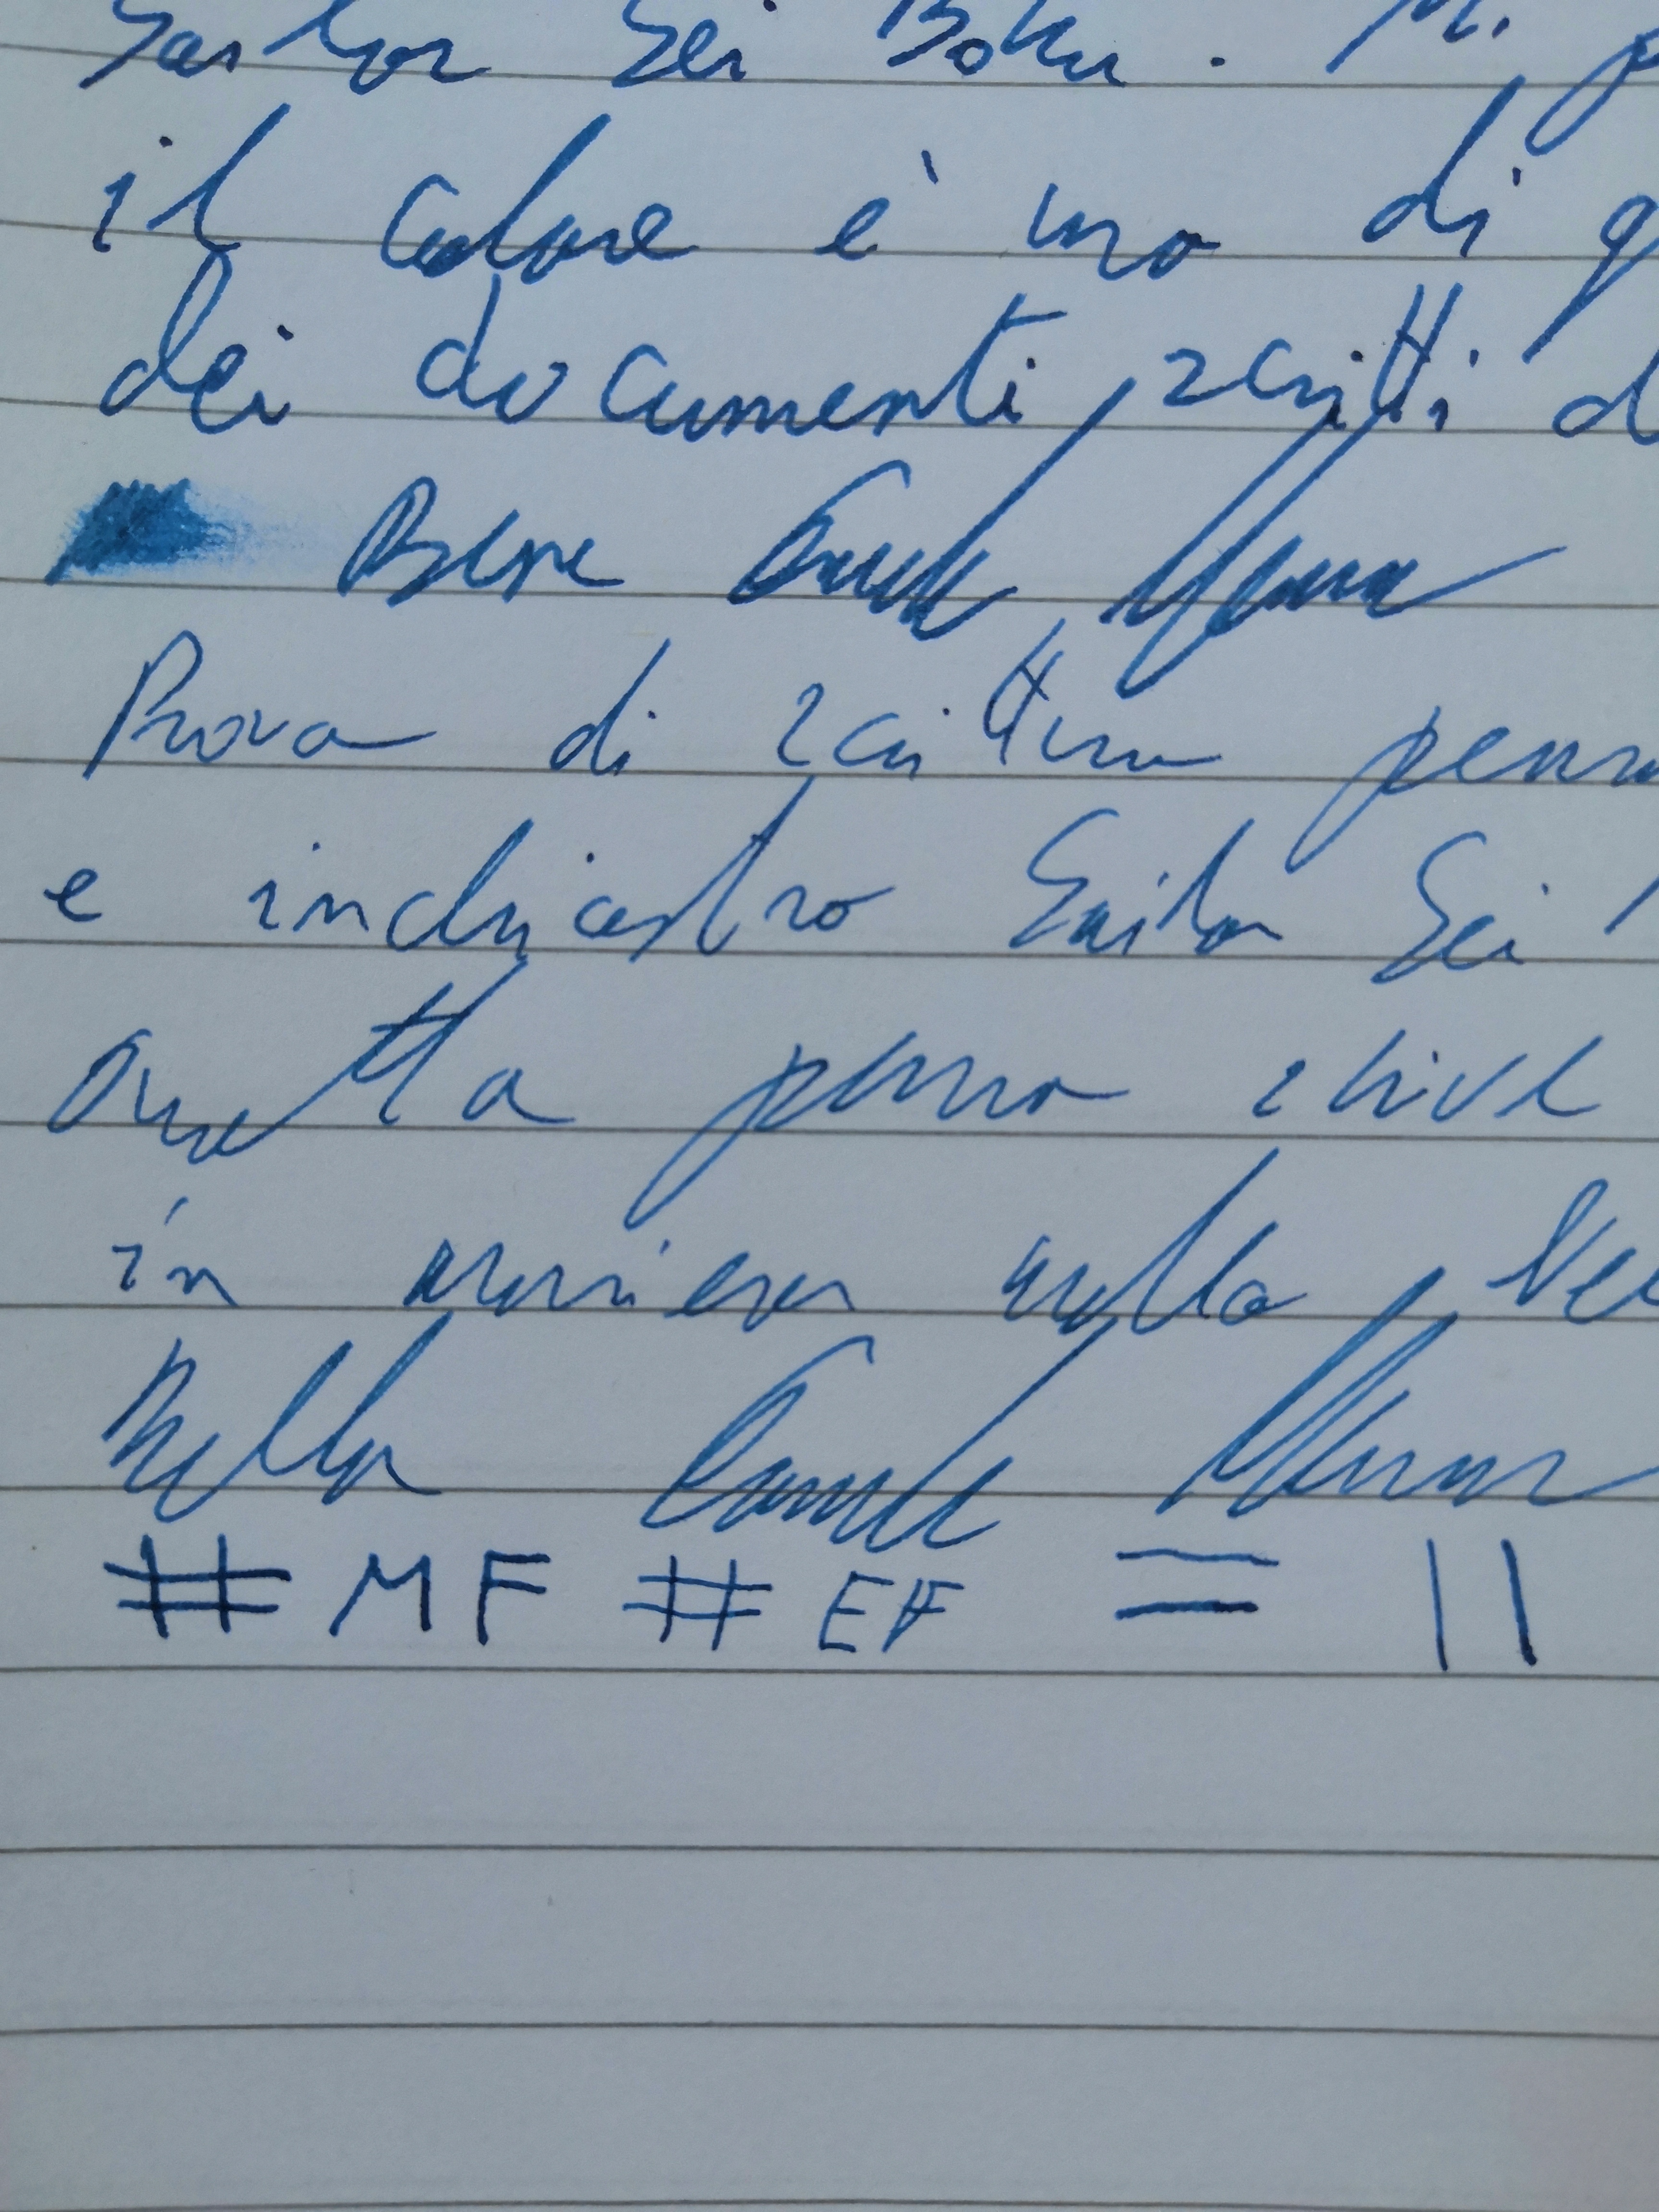 Sailor Sei Boku. Mi p
il colore è uno di q
dei documenti scritti d
Bene
Prova di scrittura penn
e inchiostro Sailor Sei
Questa penna scrive
in maniera molto ve
Bella
# MF # EF = ||